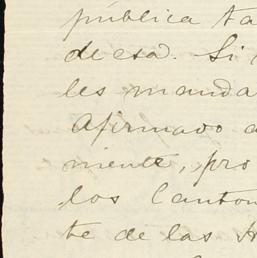 pública ta
deesa. Si
les manda
afirmado a
miente, pro
los Canton
te de las H